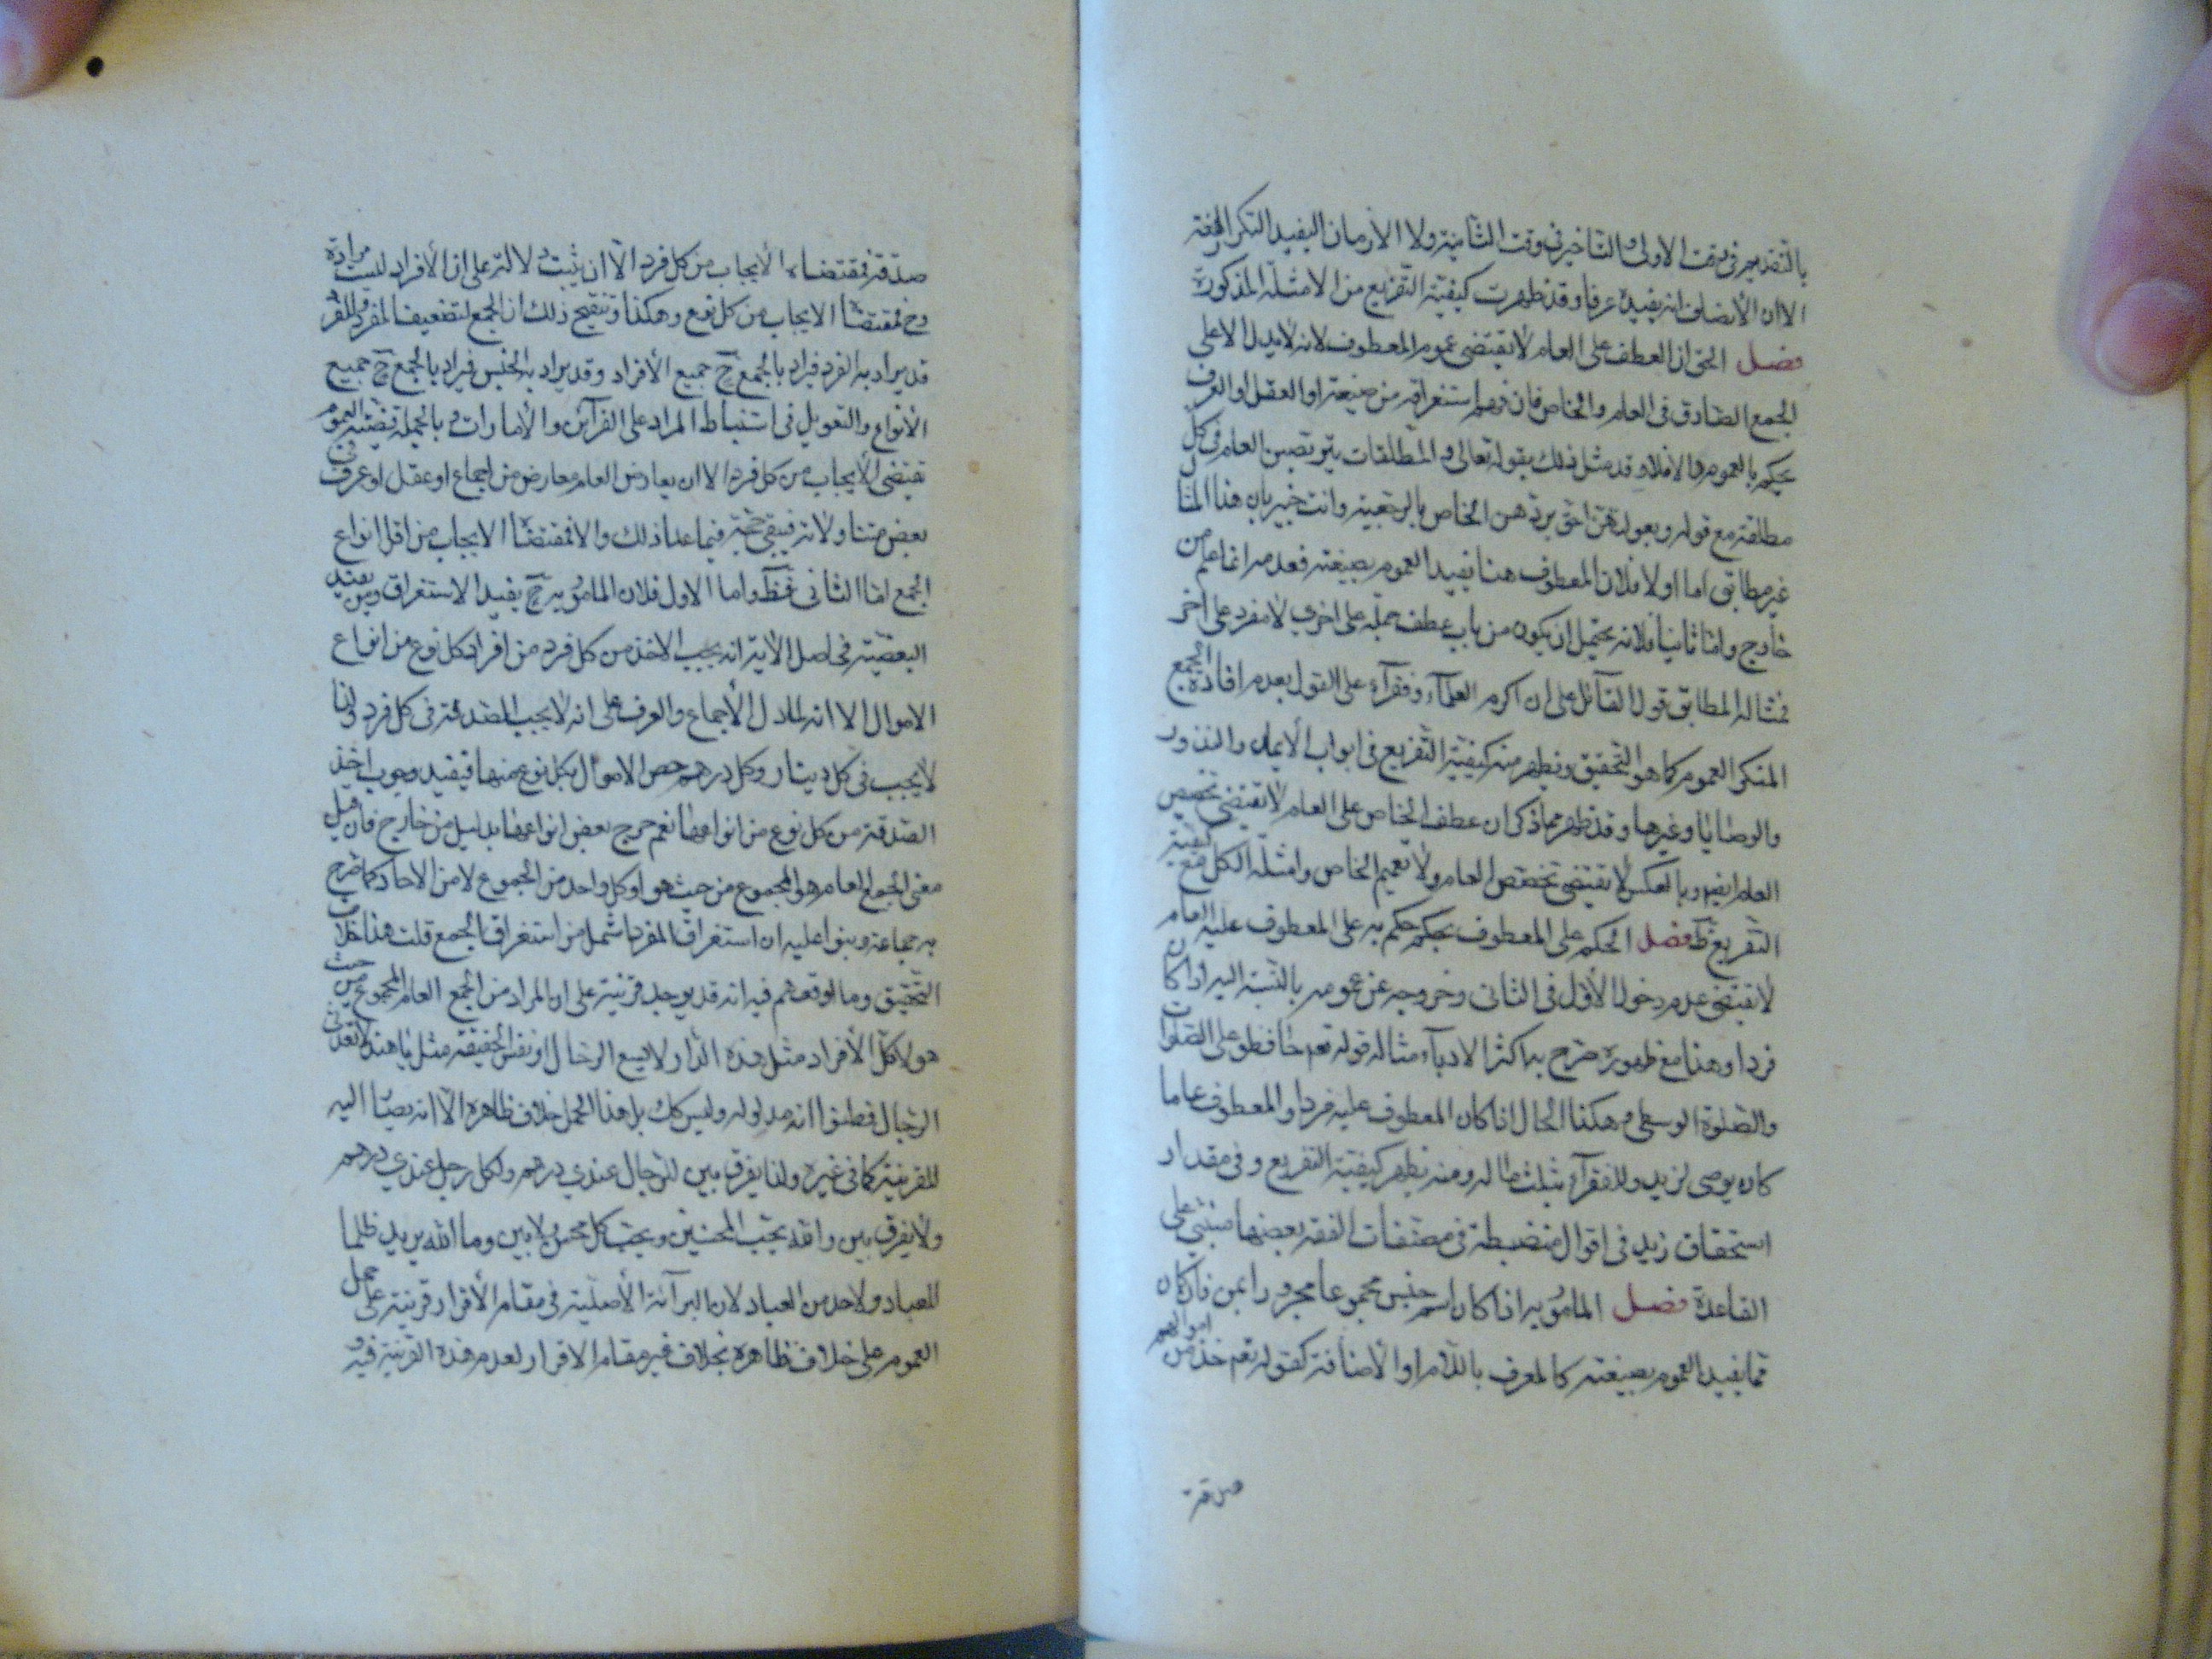 بالتقديم في وقت الاولى والتاخير في وقت الثانية ولا الازمان اليفيد التكرار لغة
الا ان الانصاف انه يفيده عرفا وقد ظهرت كيفية التفريع من الامثلة المذكورة
فصل الحق ان العطف على العام لا يقتضى عموم المعطوف لانه لا يدل الا على
الجمع الصادق فى العام والخاص فان فهم استغراقه من صيغته او العقل او العرف
يحكم بالعموم والا فلا وقد مثل لذلك بقوله تعالى والمطلقات يتربصن العام فى كل
مطلقة مع قوله وبعولتهن احق بردهن الخاص بالرجعية وانت خبير بان هذا المثال
غير مطابق اما اولا فلان المعطوف هنا يفيد العموم بصيغته فعدمه انما علم من
خارج واما ثانيا فلانه يحتمل ان يكون من باب عطف جملة على اخرى لا مفرد على اخر
فمثاله المطابق قول القائل على ان اكرم العلمآء وفقرآء على القول بعدم افادة الجمع
المنكر العموم كما هو التحقيق ويظهر منه كيفية التفريع فى ابواب الايمان والنذور
والوصايا وغيرها وقد ظهر مما ذكر ان عطف الخاص على العام لا يقتضى تخصيص
العام ايضا وبالعكس لا يقتضى تخصص العام ولا تعميم الخاص وامثلة الكل مع كيفية
التفريع ظ فصل الحكم على المعطوف بحكم حكم به على المعطوف عليه العام
لا يقتضى عدم دخول الاول فى الثانى وخروجه عن عمومه بالنسبة اليه اذا كان
فردا وهذا مع ظهوره صرح به اكثر الادبآء مثاله قوله تعم حافظوا على الصلوات
والصلوة الوسطى وهكذا الحال اذا كان المعطوف عليه فردا والمعطوف عاما
كان يوصى لزيد وللفقرآء بثلث ماله ومنه يظهر كيفية التفريع وفى مقدار
استحقاق زيد فى اقوال منضبطة فى مصنفات الفقه بعضها مبتنى على
القاعدة فصل المامور به اذا كان اسم جنس مجموعا مجرورا بمن فان كان
مما يفيد العموم بصيغته كالمعرف باللام او الاضافة كقوله تعم خذ من اموالهم
صدقة
صدقة فمقتضاه الايجاب من كل فرد الا ان يثبت دلالة على ان الافراد ليست مرادة
وح فمقتضا الايجاب من كل نوع وهكذا وتنقيح ذلك ان الجمع لتضعيف المفرد والمفرد
قد يراد به الفرد فيراد بالجمع ح جميع الافراد وقد يراد به الجنس فيراد بالجمع ح جميع
الانواع والتعويل فى استنباط المراد على القرآئن والامارات وبالجملة قضية العموم
تقتضى الايجاب من كل فرد الا ان يعارض العام معارض من اجماع او عقل او عرف فى
بعض متناولاته فيبقى حجة فيما عدا ذلك والا فمقتضا الايجاب من اقل انواع
الجمع اما الثانى فظ واما الاول فلان المامور به ح يفيد الاستغراق ومن يفيد
البعضية فحاصل الاية انه يجب الاخذ من كل فرد من افراد كل نوع من انواع
الاموال الا انه لما دل الاجماع والعرف على انه لا يجب الصدقة فى كل فرد ولذا
لا يجب فى كل دينار وكل درهم خص الاموال بكل نوع منها فيفيد وجوب اخذ
الصدقة من كل نوع من انواعها نعم خرج بعض انواعها بدليل من خارج فان قيل
معنى الجمع العام هو المجموع من حيث هو او كل واحد من الجموع لا من الاحاد كما صرح
به جماعة وبنوا عليه ان استغراق المفرد اشمل من استغراق الجمع قلت هذا خلاف
التحقيق وما اوقعهم فيه انه قد يوجد قرينة على ان المراد من الجمع العام المجموع من حيث
هو لا كل الافراد مثل هذه الدار لا يسع الرجال او نفس الحقيقة مثل يا هند لا تعدنى
الرجال فظنوا انه مدلوله وليس كك بل هذا الحمل خلاف ظاهره الا انه يصار اليه
للقرينة كما فى غيره ولذا يفرق بين للرجال عندى درهم ولكل رجل عندى درهم
ولا يفرق بين والله يحب المحسنين ويحب كل محسن ولا بين وما الله يريد ظلما
للعباد ولا احد من العباد لان البرآئة الاصلية فى مقام الاقرار قرينة على حمل
العموم على خلاف ظاهره بخلاف غير مقام الاقرار لعدم هذه القرينة فيه